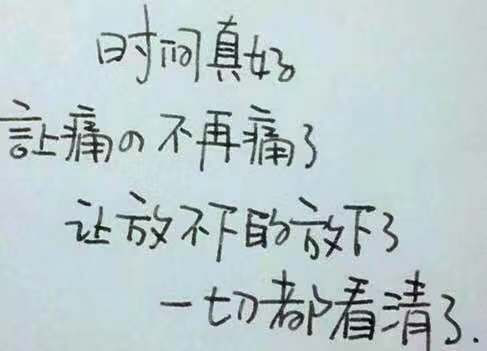 时间真好
訨痛の不再痛了
让放不下的放下了
一切都看清了.